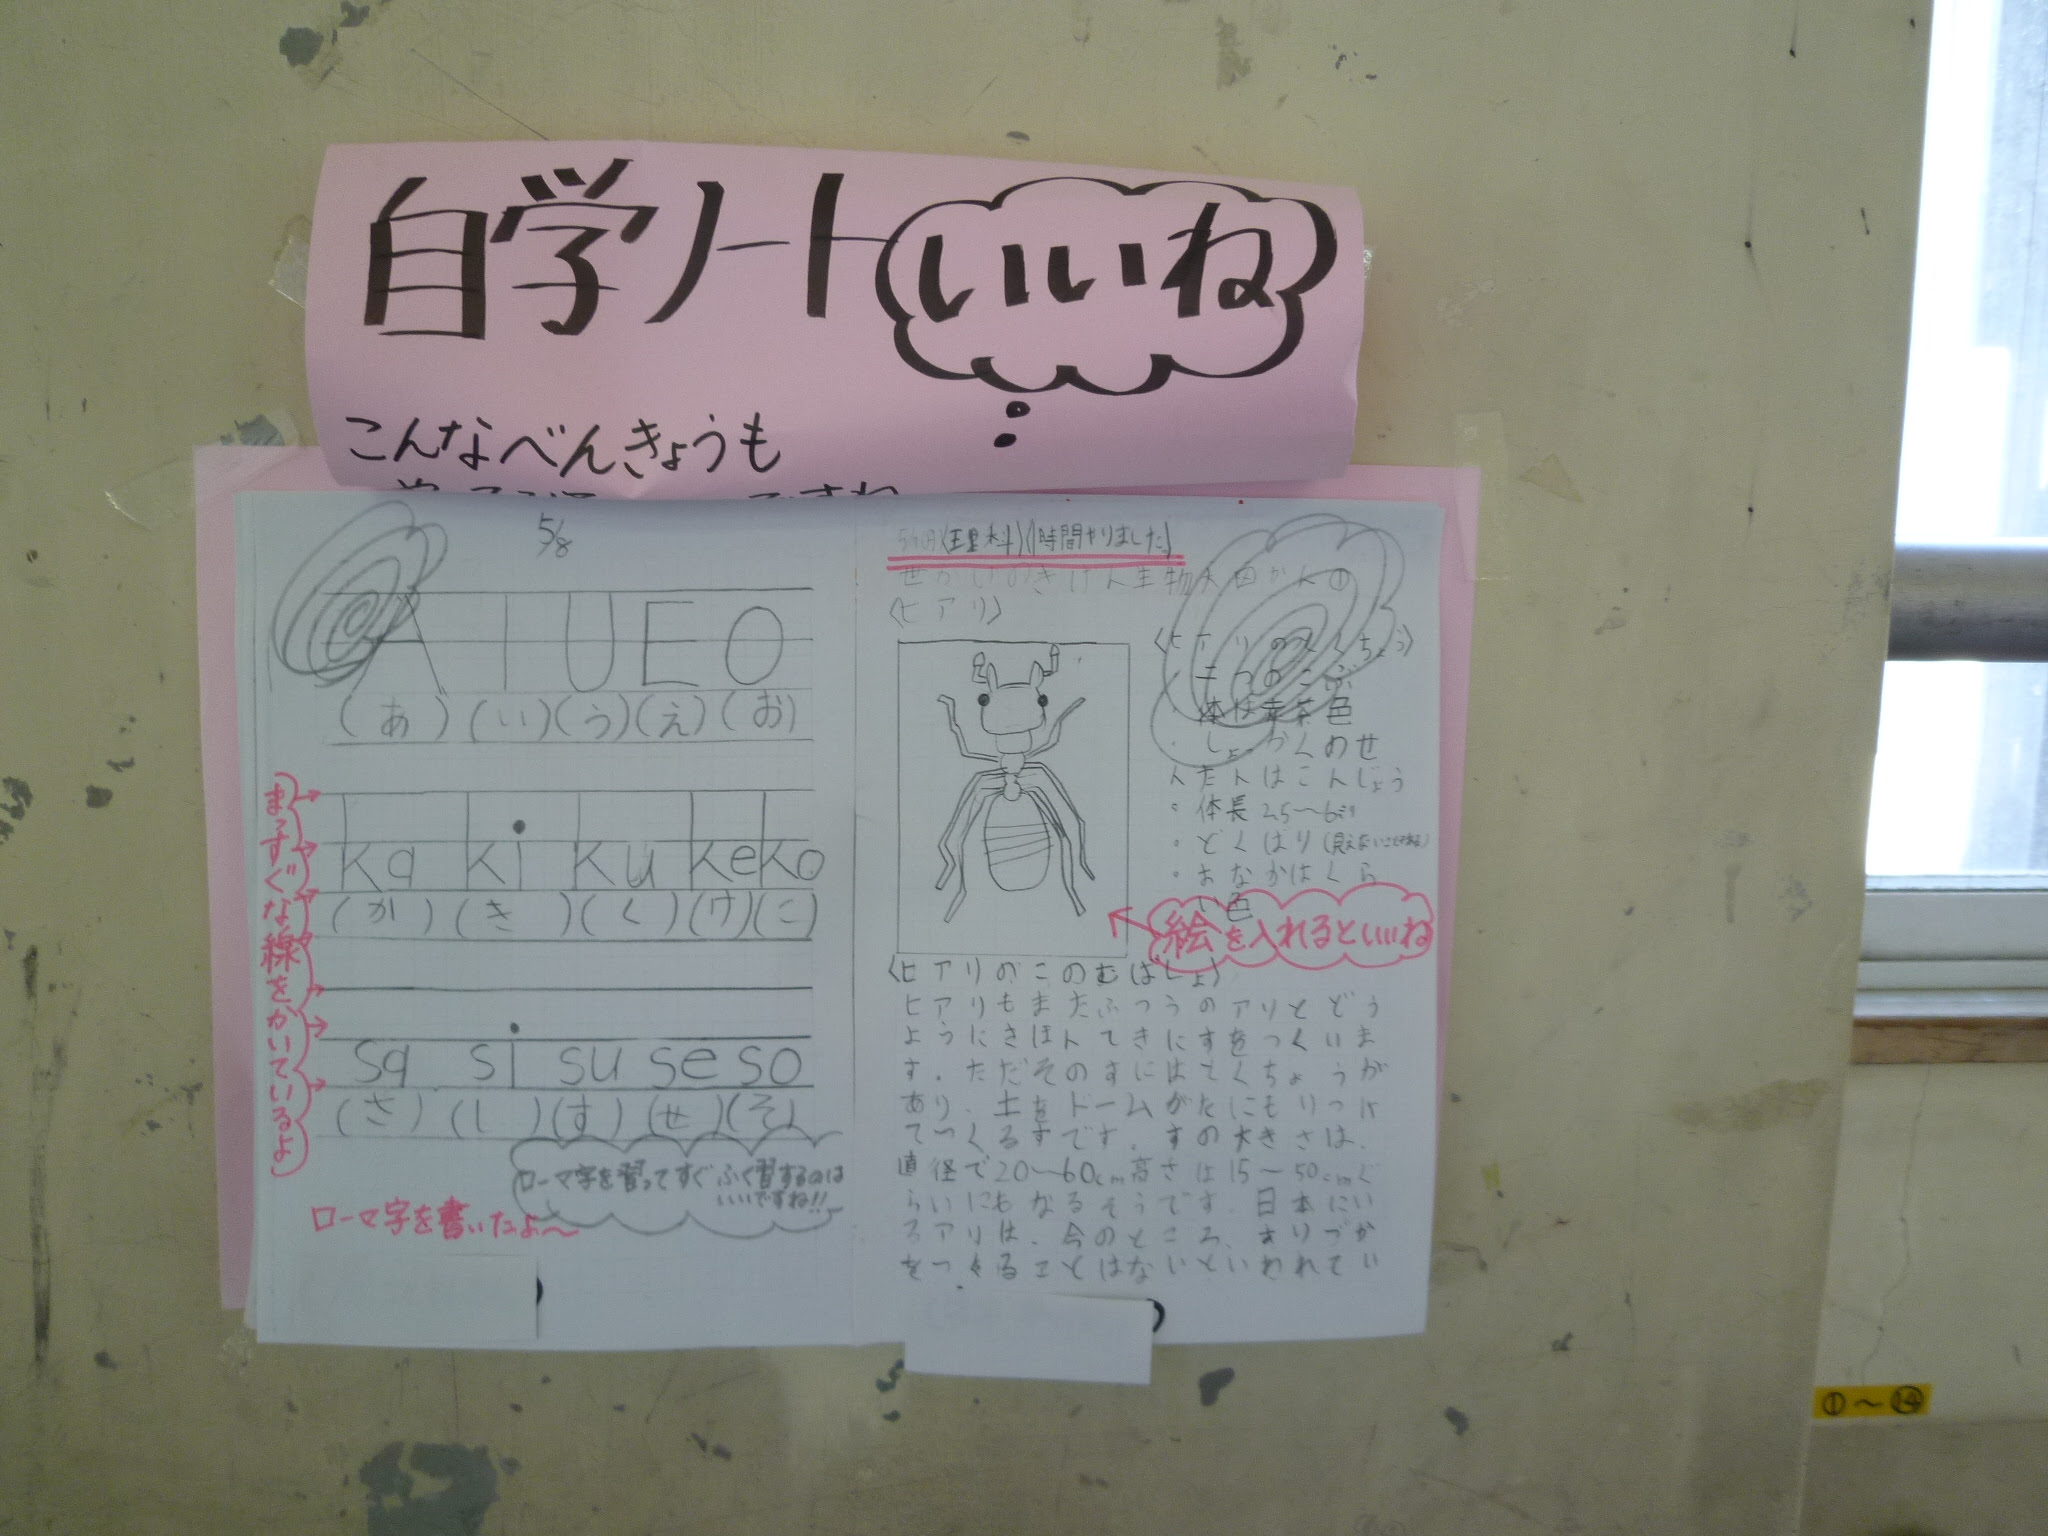 自学ノート いいね
こんなべんきょうも
5/8
A I U E O
(あ) (い) (う) (え) (お)
ka ki ku ke ko
(か) (き) (く) (け) (こ)
sa si su se so
(さ) (し) (す) (せ) (そ)
まっすぐな線をかいているよ
ローマ字を習ってすぐふく習するのは
いいですね!!
ローマ字を書いたよ〜
(理科)(1時間やりました。)
せかいのきけん生物大図かん①
〈ヒアリ〉
〈ヒアリのとくちょう〉
二つのこぶ
体は赤茶色
・しょっかくのせ
んたんはこんじょう
・体長2.5〜6ミリ
・どくばり(見えないこともある)
・おなかはくら
い色
絵を入れるといいね
〈ヒアリのこのむばしょ〉
ヒアリもまたふつうのアリとどう
ようにきほんてきにすをつくいま
す。ただそのすにはとくちょうが
あり、土をドームがたにもりつけ
てつくるすです。すの大きさは、
直径で20〜60cm高さは15〜50cmぐ
らいにもなるそうです。日本にい
るアリは、今のところ、ありづか
をつくることはないといわれてい
①〜⑭